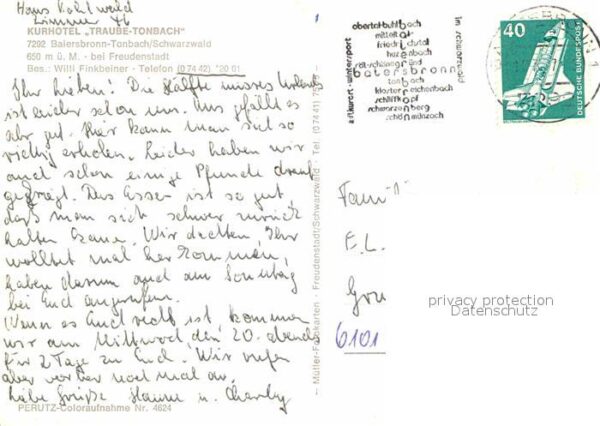 Haus Kohlwald
Zimmer 46
KURHOTEL „TRAUBE-TONBACH"
7292 Baiersbronn-Tonbach/Schwarzwald
650 m ü. M. - bei Freudenstadt
Bes.: Willi Finkbeiner - Telefon (0 74 42) *20 01
Ihr lieben! Die Hälfte unsres Urlaubs
ist leider schon um. Uns gefällt es
sehr gut. Hier kann man sich so
richtig erholen. Leider haben wir
auch schon einige Pfunde drauf
gekriegt. Das Essen ist so gut,
daß man sich schwer zurück
halten kann. Wir dachten, Ihr
wolltet mal her kommen,
haben darum auch am Sonntag
bei Euch angerufen.
Wenn es Euch recht ist, kommen
wir am Mittwoch, den 20. abends
für 2 Tage zu Euch. Wir rufen
aber vorher noch mal an.
liebe Grüße Hanne u. Charly
PERUTZ-Coloraufnahme Nr. 4624
Müller-Farbkarten - Freudenstadt/Schwarzwald - Tel. (0 74 41)
luftkurort-wintersport
obertal-buhlbach
mitteltal
friedrichstal
huzenbach
röt-schönegründ
baiersbronn
tonbach
klosterreichenbach
schliffkopf
schwarzenberg
schönmünzach
im schwarzwald
40
DEUTSCHE BUNDESPOST
Fam
E.L.
Gru
6101
privacy protection
Datenschutz